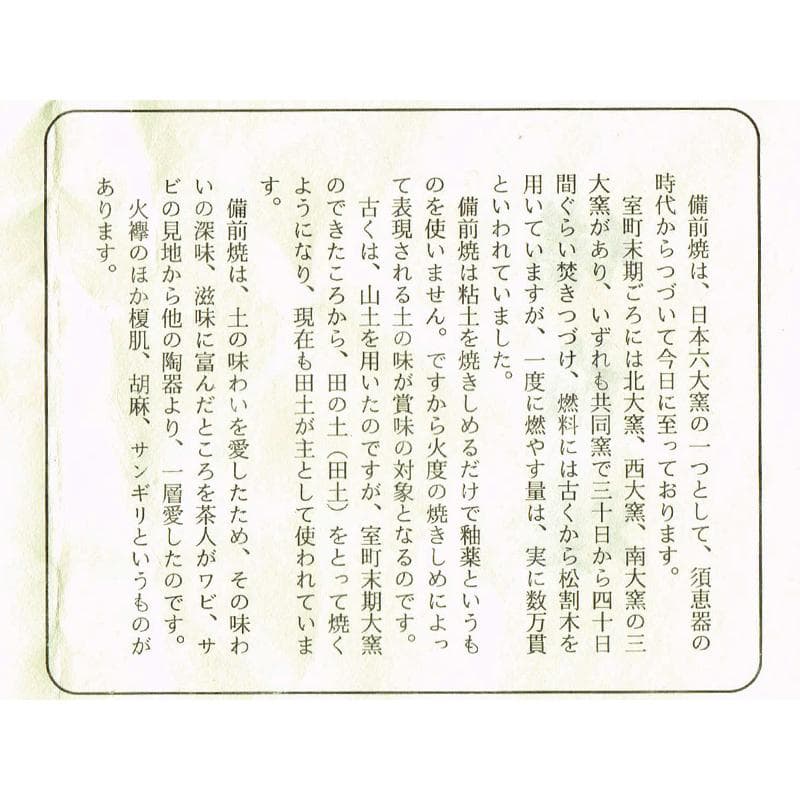 備前焼は、日本六大窯の一つとして、須恵器の
時代からつづいて今日に至っております。
室町末期ごろには北大窯、西大窯、南大窯の三
大窯があり、いずれも共同窯で三十日から四十日
間ぐらい焚きつづけ、燃料には古くから松割木を
用いていますが、一度に燃やす量は、実に数万貫
といわれていました。
備前焼は粘土を焼きしめるだけで釉薬というも
のを使いません。ですから火度の焼きしめによっ
て表現される土の味が賞味の対象となるのです。
古くは、山土を用いたのですが、室町末期大窯
のできたころから、田の土（田土）をとって焼く
ようになり、現在も田土が主として使われていま
す。
備前焼は、土の味わいを愛したため、その味わ
いの深味、滋味に富んだところを茶人がワビ、サ
ビの見地から他の陶器より、一層愛したのです。
火襷のほか榎肌、胡麻、サンギリというものが
あります。